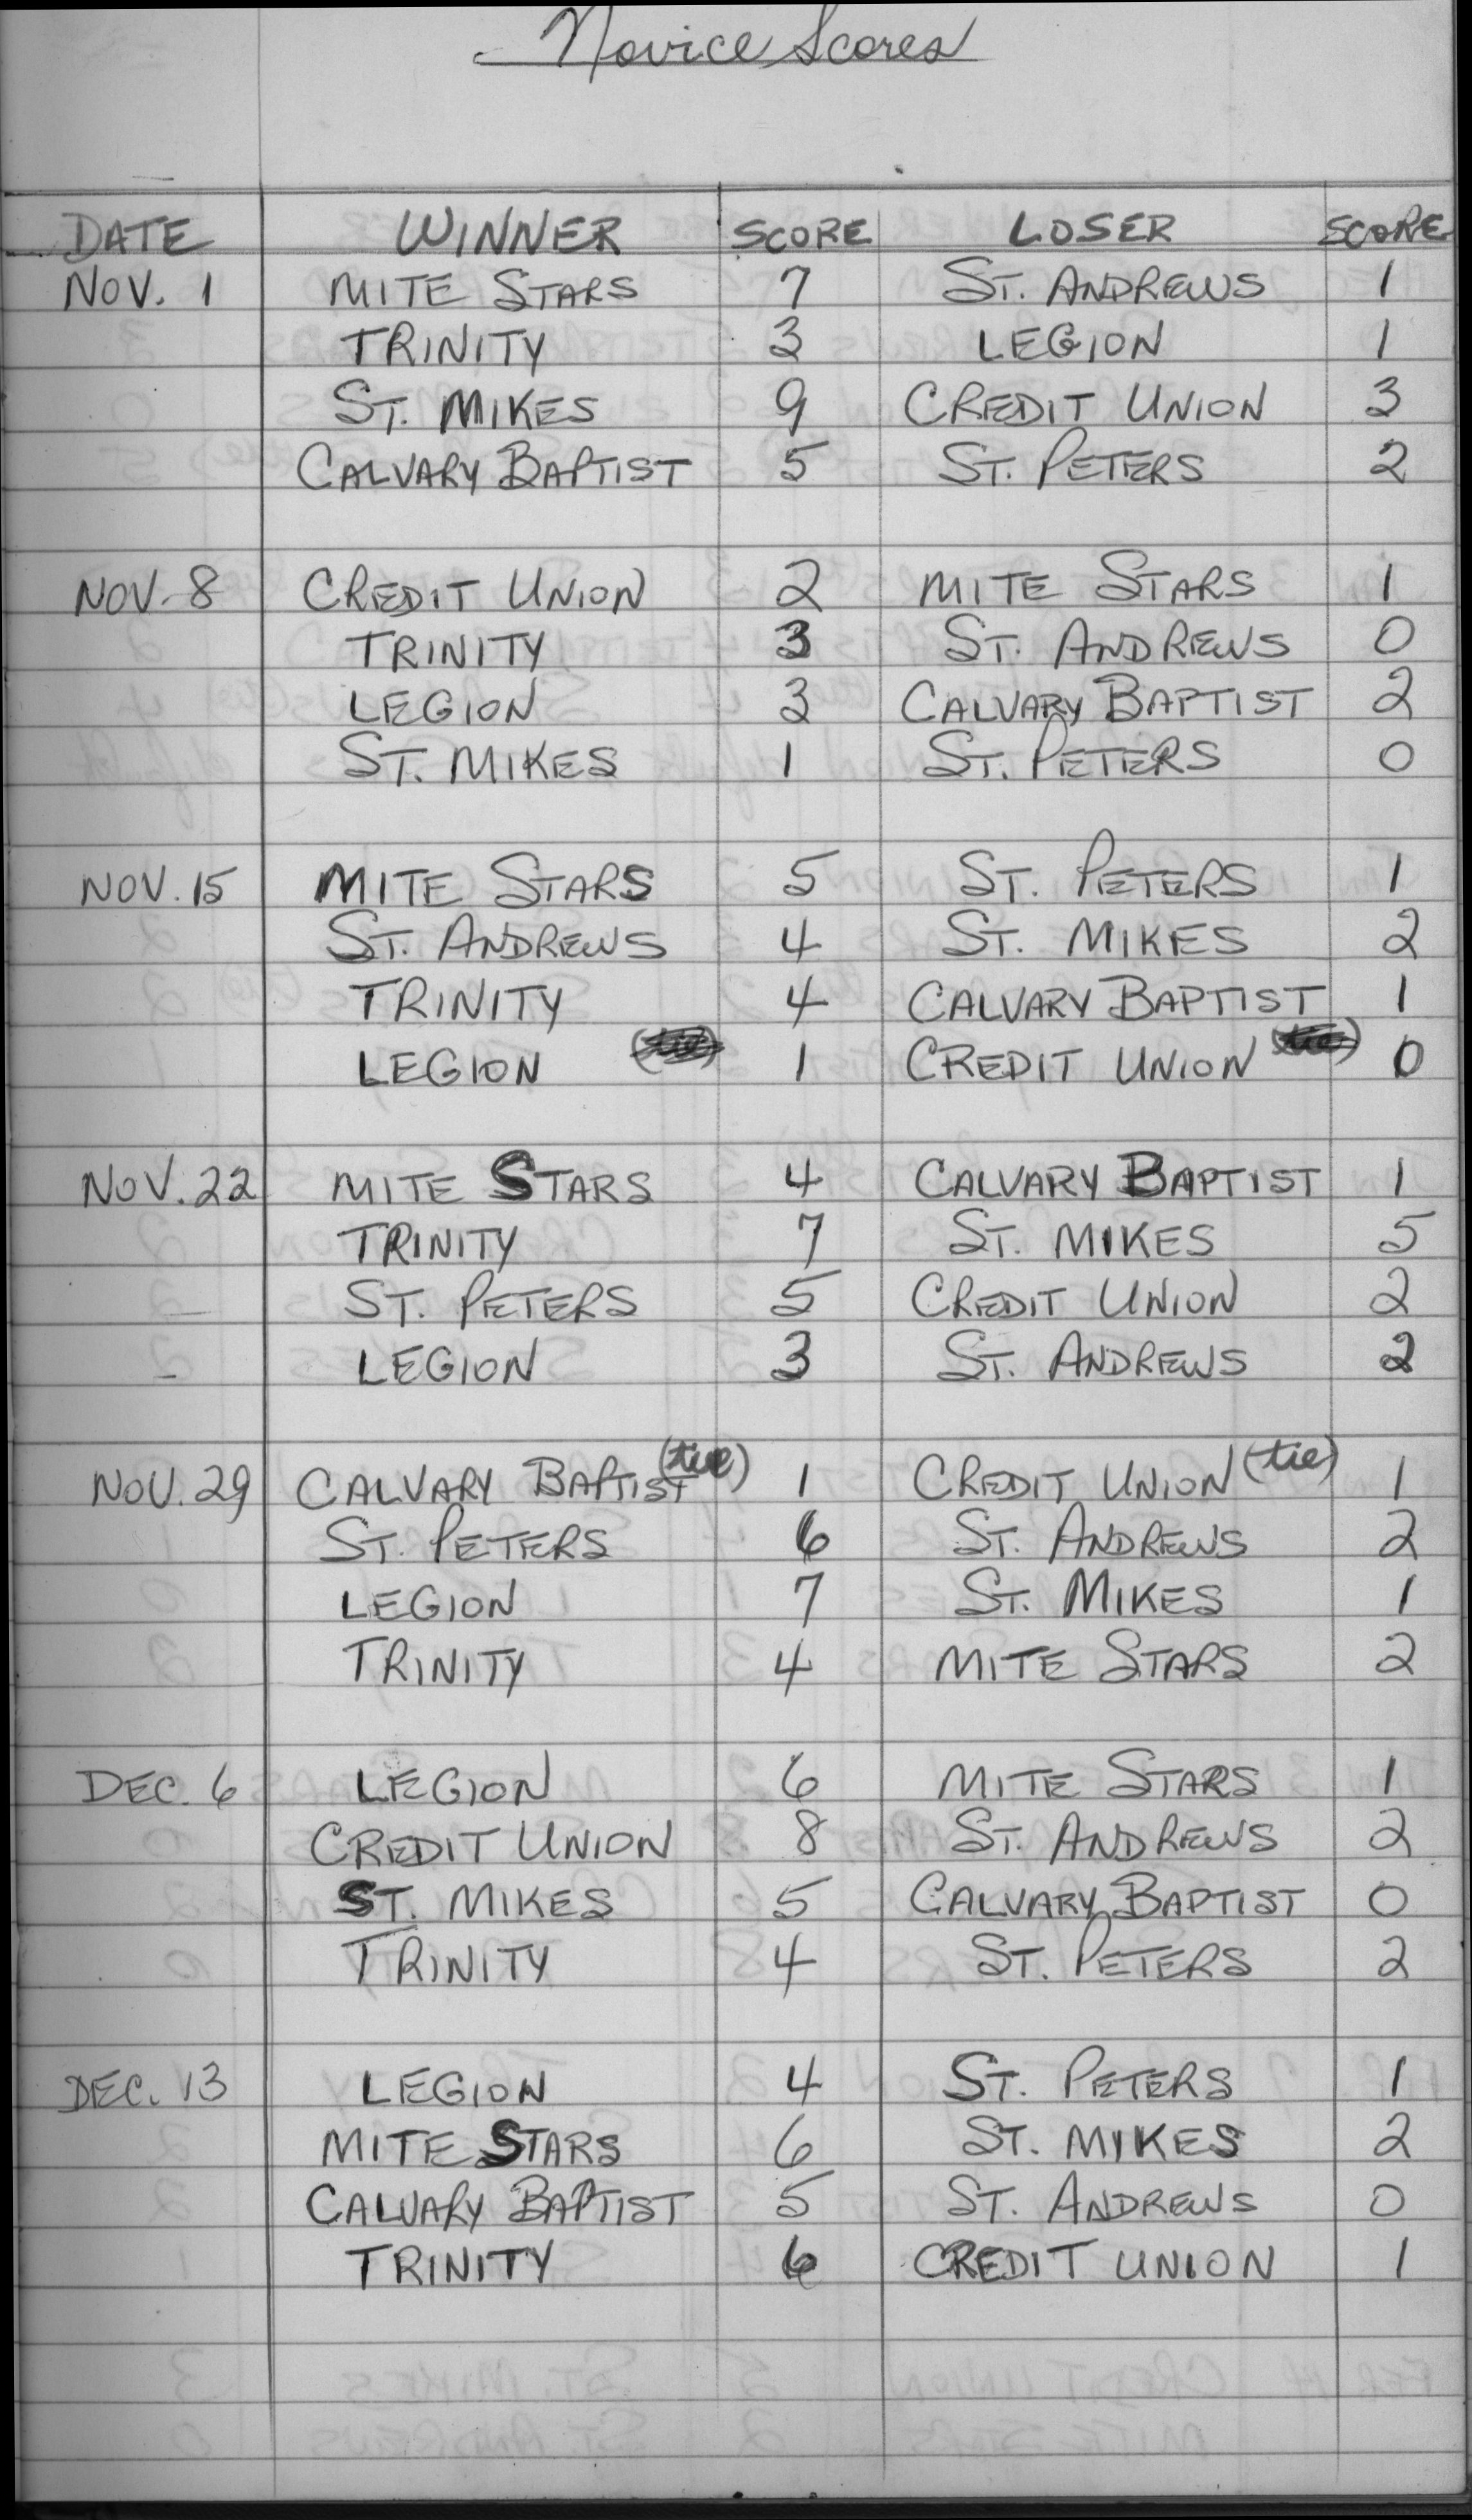 Novice Scores
DATE WINNER SCORE LOSER SCORE
NOV. 1 MITE STARS 7 ST. ANDREWS 1
TRINITY 3 LEGION 1
ST. MIKES 9 CREDIT UNION 3
CALVARY BAPTIST 5 ST. PETERS 2
NOV. 8 CREDIT UNION 2 MITE STARS 1
TRINITY 3 ST. ANDREWS 0
LEGION 3 CALVARY BAPTIST 2
ST. MIKES 1 ST. PETERS 0
NOV. 15 MITE STARS 5 ST. PETERS 1
ST. ANDREWS 4 ST. MIKES 2
TRINITY 4 CALVARY BAPTIST 1
LEGION 1 CREDIT UNION 0
NOV. 22 MITE STARS 4 CALVARY BAPTIST 1
TRINITY 7 ST. MIKES 5
ST. PETERS 5 CREDIT UNION 2
LEGION 3 ST. ANDREWS 2
NOV. 29 CALVARY BAPTIST (tie) 1 CREDIT UNION (tie) 1
ST. PETERS 6 ST. ANDREWS 2
LEGION 7 ST. MIKES 1
TRINITY 4 MITE STARS 2
DEC. 6 LEGION 6 MITE STARS 1
CREDIT UNION 8 ST. ANDREWS 2
ST. MIKES 5 CALVARY BAPTIST 0
TRINITY 4 ST. PETERS 2
DEC. 13 LEGION 4 ST. PETERS 1
MITE STARS 6 ST. MIKES 2
CALVARY BAPTIST 5 ST. ANDREWS 0
TRINITY 6 CREDIT UNION 1